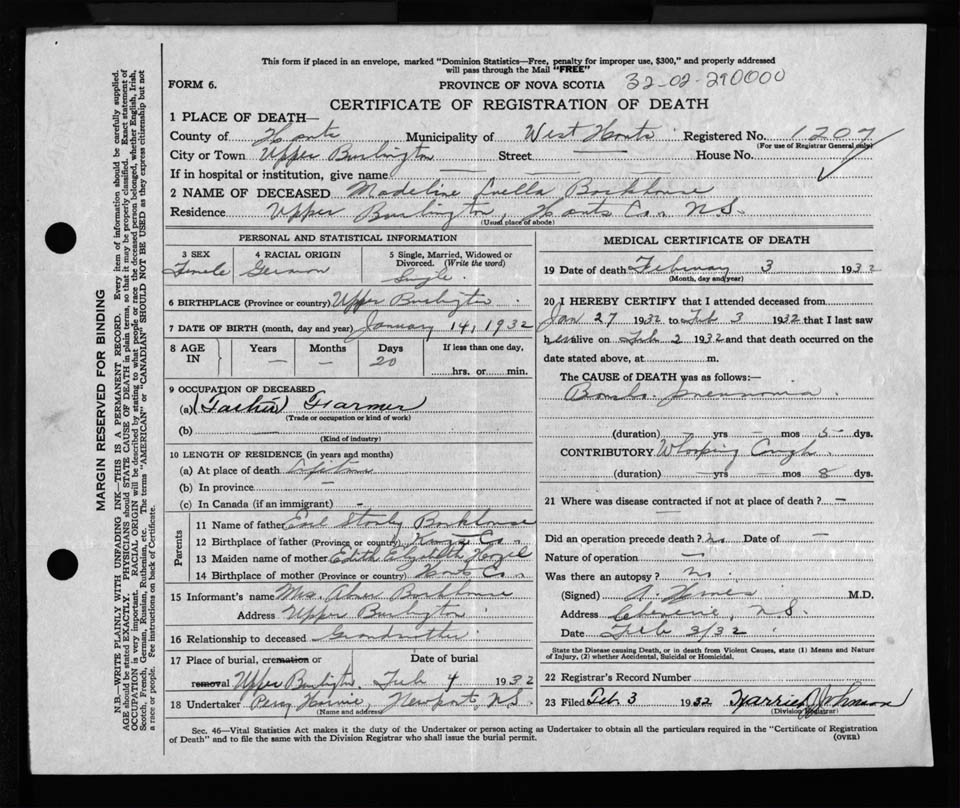 This form if placed in an envelope, marked "Dominion Statistics—Free, penalty for improper use, $300," and properly addressed
will pass through the Mail "FREE"
FORM 6.
PROVINCE OF NOVA SCOTIA
32-02-290000
CERTIFICATE OF REGISTRATION OF DEATH
1 PLACE OF DEATH—
County of Hants Municipality of West Hants Registered No. 1207
(For use of Registrar General only)
City or Town Upper Burlington Street — House No.
If in hospital or institution, give name — —
2 NAME OF DECEASED Madeline Luella Barkhouse
Residence Upper Burlington, Hants Co., N.S.
(Usual place of abode)
PERSONAL AND STATISTICAL INFORMATION
3 SEX 4 RACIAL ORIGIN 5 Single, Married, Widowed or
Divorced. (Write the word)
Female German Single
6 BIRTHPLACE (Province or country) Upper Burlington
7 DATE OF BIRTH (month, day and year) January 14, 1932
8 AGE IN Years Months Days If less than one day,
— — 20 hrs. or min.
9 OCCUPATION OF DECEASED
(a) (Father) Farmer
(Trade or occupation or kind of work)
(b)
(Kind of industry)
10 LENGTH OF RESIDENCE (in years and months)
(a) At place of death Lifetime
(b) In province —
(c) In Canada (if an immigrant) —
Parents
11 Name of father Earl Stanley Barkhouse
12 Birthplace of father (Province or country) Hants Co.
13 Maiden name of mother Edith Elizabeth
14 Birthplace of mother (Province or country) Hants Co.
15 Informant's name Mrs. Abner Barkhouse
Address Upper Burlington
16 Relationship to deceased Grandmother
17 Place of burial, cremation or Date of burial
removal Upper Burlington Feb 4 1932
18 Undertaker Percy Newport, N.S.
(Name and address)
MEDICAL CERTIFICATE OF DEATH
19 Date of death February 3 1932
(Month, day and year)
20 I HEREBY CERTIFY that I attended deceased from
Jan 27 1932 to Feb 3 1932 that I last saw
her alive on Feb 2 1932 and that death occurred on the
date stated above, at m.
The CAUSE of DEATH was as follows:
Broncho-pneumonia
(duration) — yrs — mos 5 dys.
CONTRIBUTORY Whooping Cough
(duration) — yrs — mos 8 dys.
21 Where was disease contracted if not at place of death? —
Did an operation precede death? no Date of —
Nature of operation —
Was there an autopsy? no
(Signed) A. M.D.
Address Cheverie, N.S.
Date Feb 3/32
State the Disease causing Death, or in death from Violent Causes, state (1) Means and Nature
of Injury, (2) whether Accidental, Suicidal or Homicidal.
22 Registrar's Record Number
23 Filed Feb. 3 1932 Harried J. Johnson
(Division Registrar)
Sec. 46—Vital Statistics Act makes it the duty of the Undertaker or person acting as Undertaker to obtain all the particulars required in the "Certificate of Registration
of Death" and to file the same with the Division Registrar who shall issue the burial permit. (OVER)
MARGIN RESERVED FOR BINDING
N.B.—WRITE PLAINLY WITH UNFADING INK—THIS IS A PERMANENT RECORD. Every item of information should be carefully supplied.
AGE should be stated EXACTLY. PHYSICIANS should STATE CAUSE OF DEATH in plain terms, so that it may be properly classified. Exact statement of
OCCUPATION is very important. RACIAL ORIGIN will be described by stating to what people or race the deceased person belonged, whether English, Irish,
Scotch, French, German, Russian, Ruthenian, etc. The terms "AMERICAN" or "CANADIAN" SHOULD NOT BE USED as they express citizenship but not
a race or people. See instructions on back of Certificate.